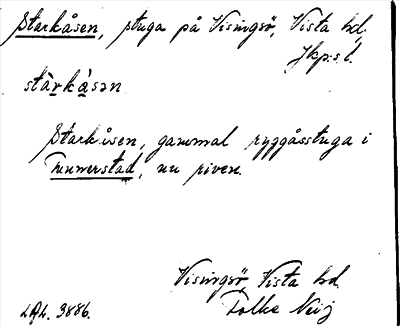 Starkåsen, stuga på Visingsö, Vista hd,
Jkp:s l.
stàrkàsən
Starkåsen, gammal ryggåsstuga i
Tunnerstad, nu riven.
Visingsö, Vista hd.
Folke Neij
LAL. 3886.